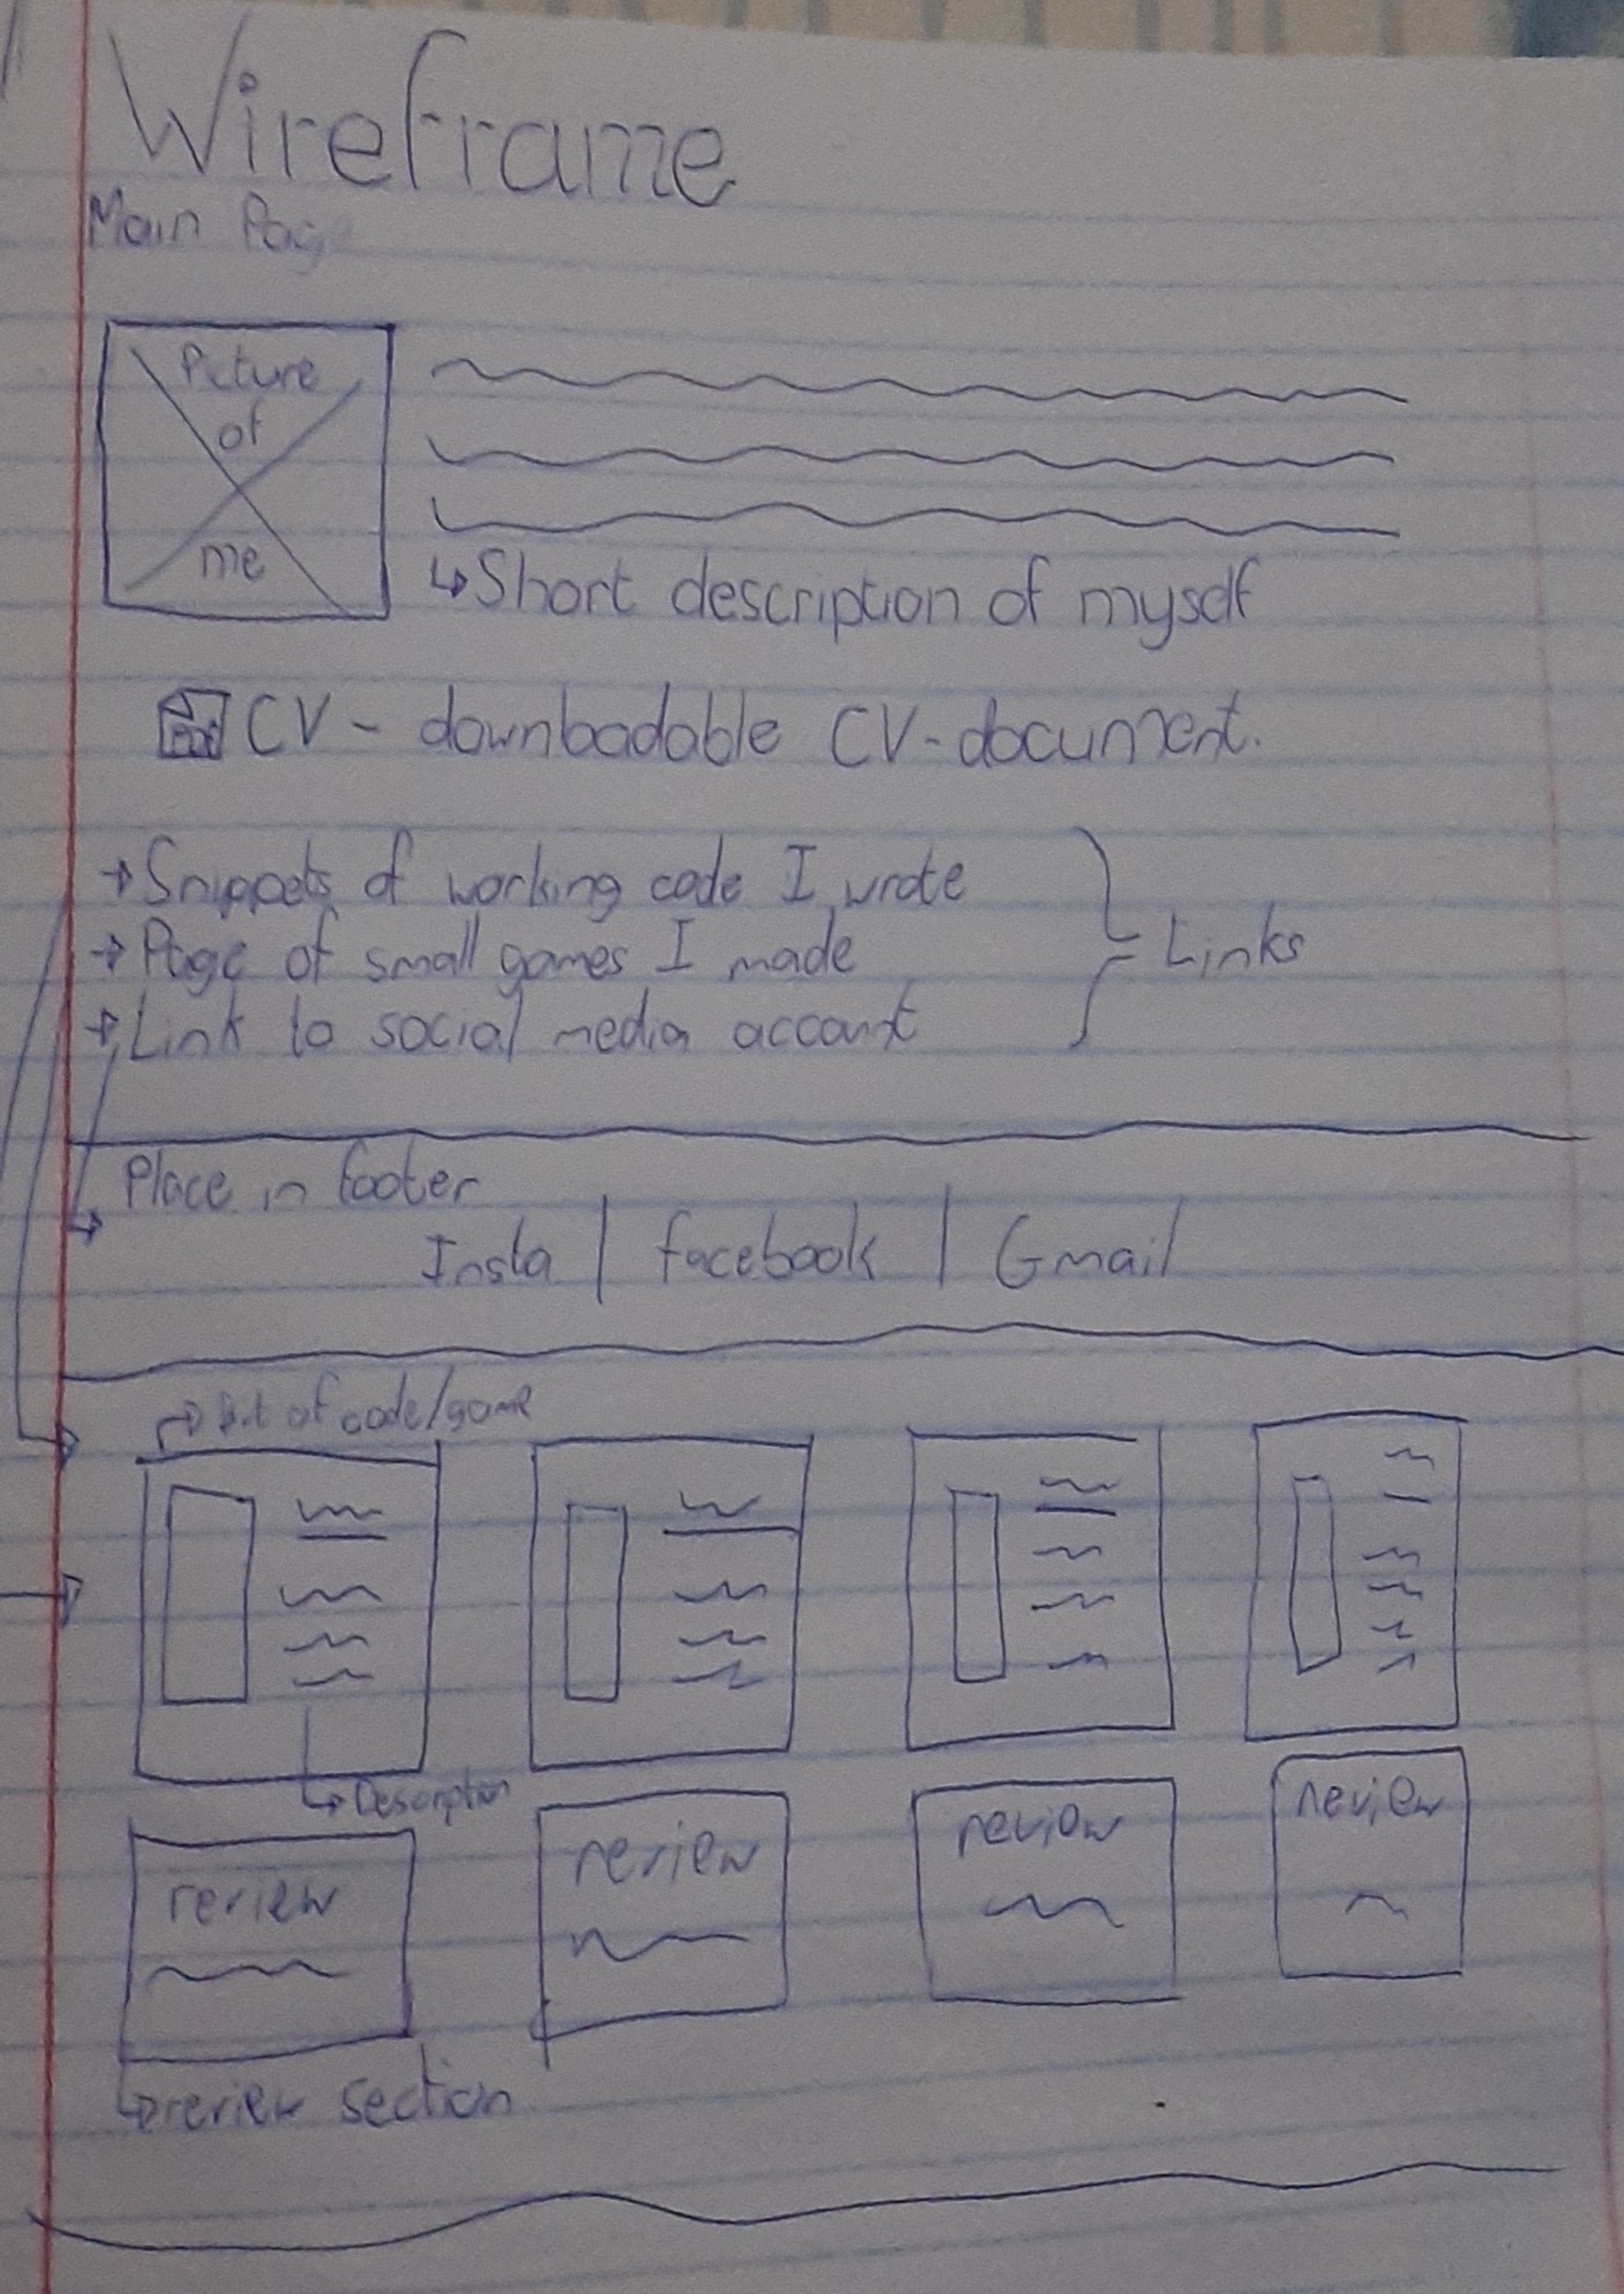 Wireframe
Main Page
Picture
of
me
↳ Short description of myself
CV - downloadable CV-document.
→ Snippets of working code I wrote
→ Page of small games I made
→ Link to social media account
Links
Place in footer
Insta | facebook | Gmail
→ bit of code/game
→ Description
review
review
review
review
↳ review section